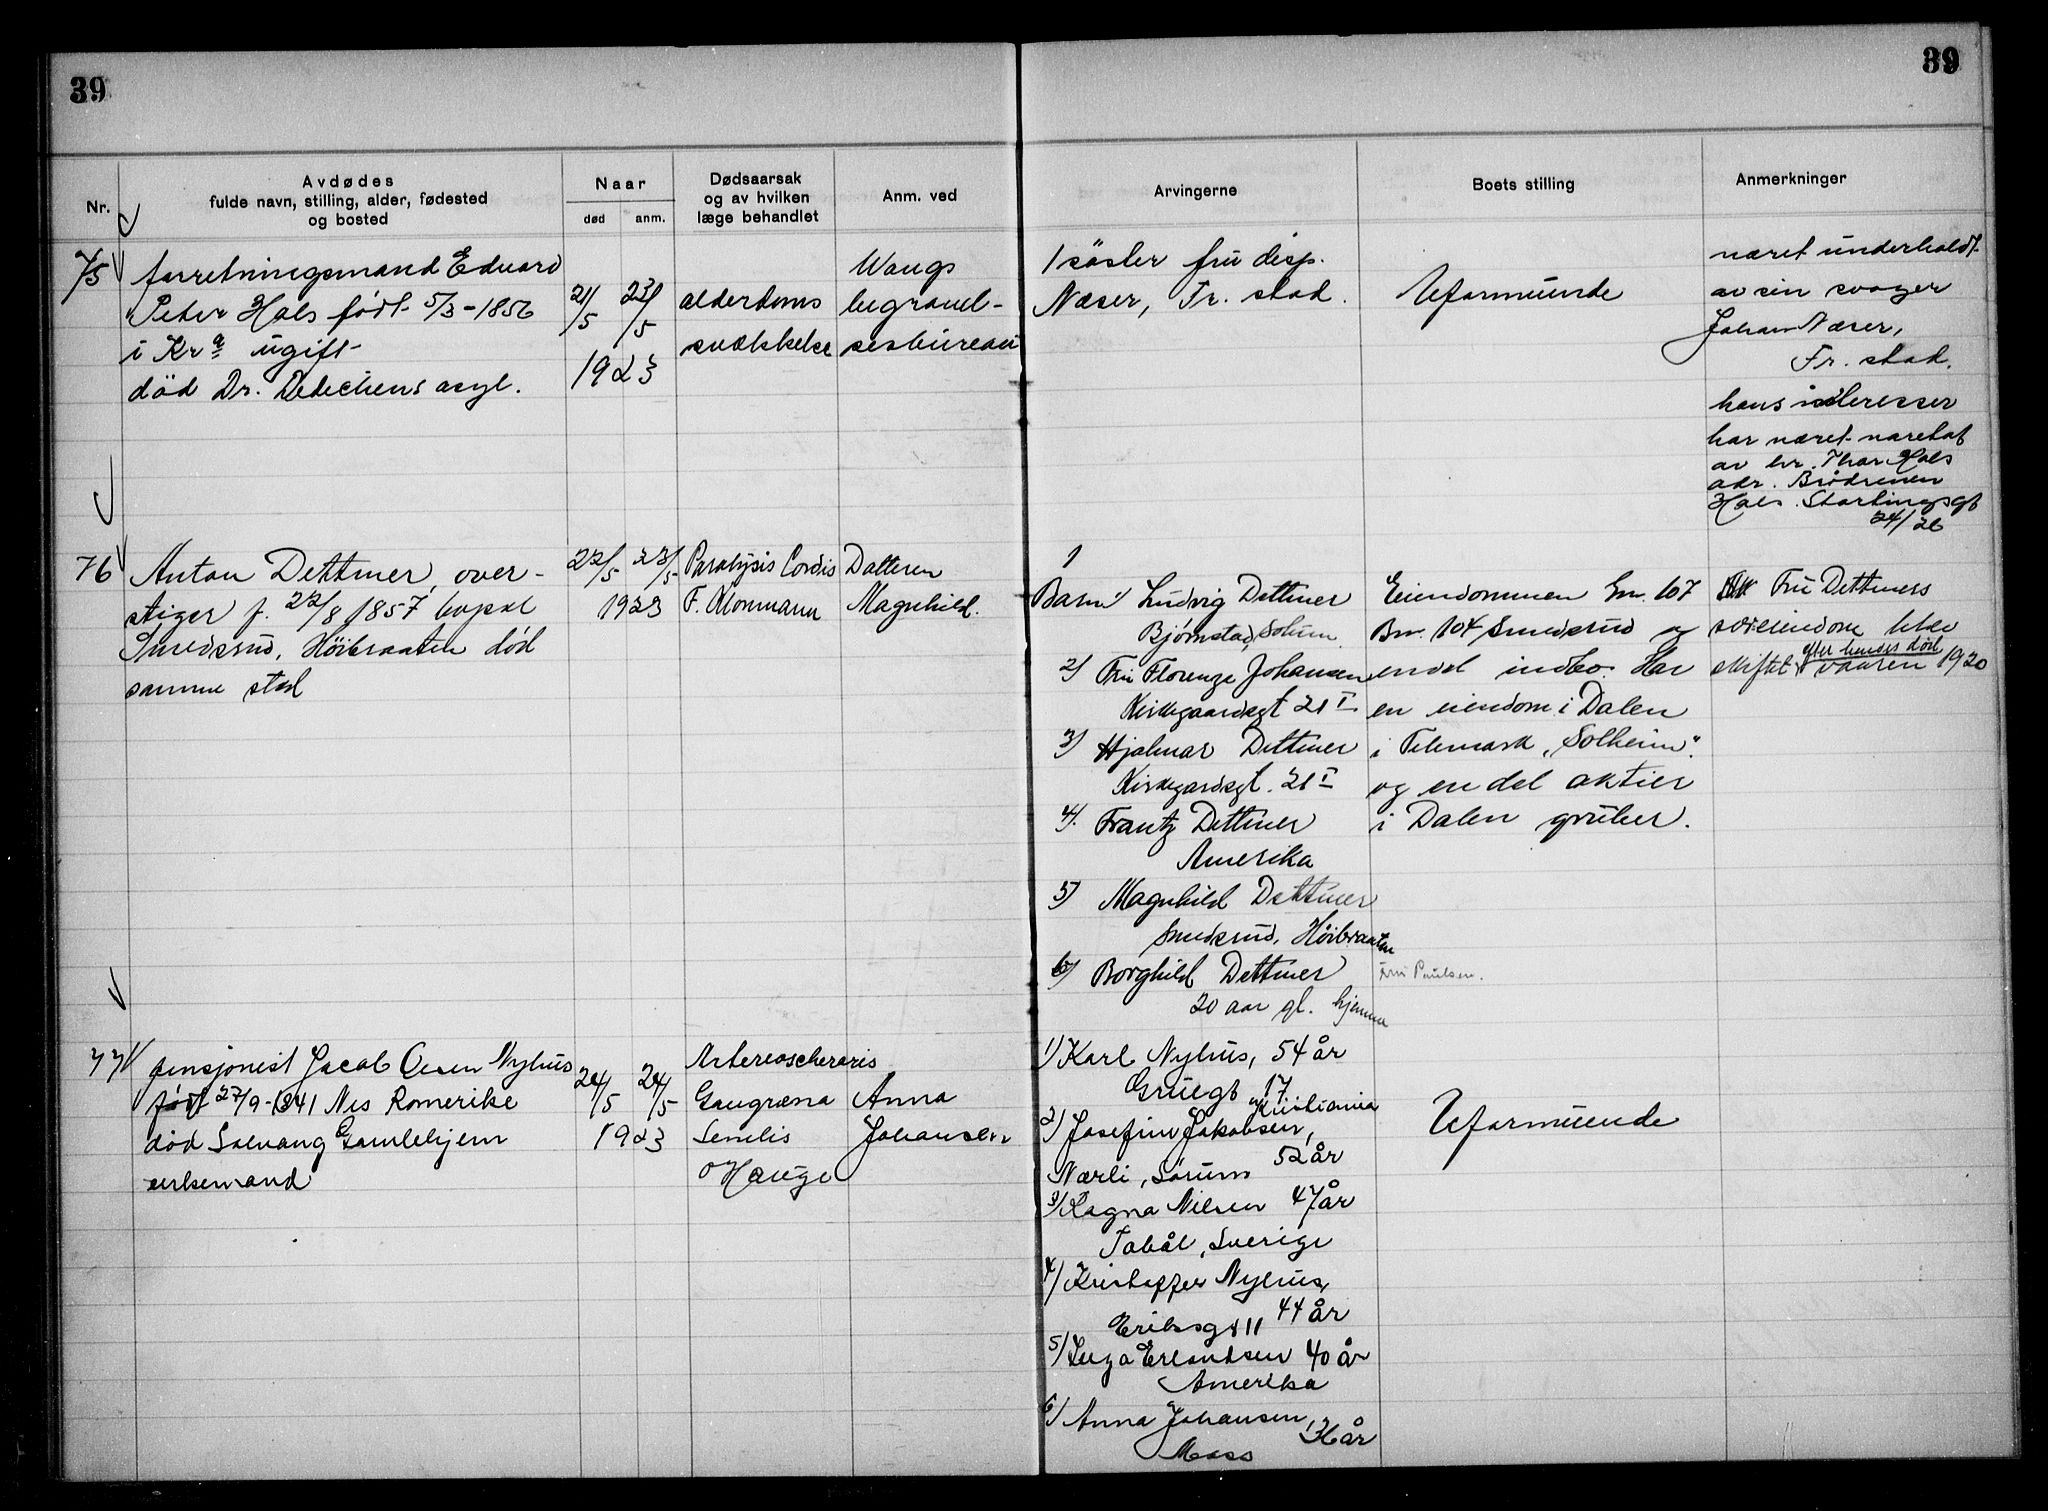 39
39
Nr.
Avdødes
fulde navn, stilling, alder, fødested
og bosted
Naar
død
anm.
Dødsaarsak
og av hvilken
læge behandlet
Anm. ved
Arvingerne
Boets stilling
Anmerkninger
75
forretningsmand Eduard
Peter Hals født 5/3-1856
i Kra ugift
død Dr. Dedechens asyl.
21/5 23/5
1923
alderdoms
svækkelse
Wangs
begravel-
sesbureau
1 søster fru disp.
Næser, Fr. stad.
Uformuende
været underholdt
av sin svoger
Johan Næser,
Fr. stad.
hans interesser
har været varetat
av hr. Thor Hals
adr. Brødrenen
Hals Stortingsgt
24/26
76
Anton Dettmer, over-
stiger f. 22/8 1857 bopæl
Smedsrud, Høibraaten død
samme sted
22/5 23/5
1923
Paralysis Cordis
F. Klonmann
Datteren
Magnhild.
Barn 1) Ludvig Dettmer
Bjørnstad, Solum
2) Fru Florenze Johansen
Kirkegaardsgt 21 I
3) Hjalmar Dettmer
Kirkegardsgt. 21 I
4). Frantz Dettmer
Amerika
5) Magnhild Dettmer
Smedsrud, Høibraaten
6) Borghild Dettmer
20 aar gl. hjemme
Fru Paulsen.
Eiendommen Gn. 107
Bn. 104 Smedsrud og
endel indbo. Har
en eiendom i Dalen
i Telemark, "Solheim".
og en del aktier
i Dalen gruber.
Fru Dettmers
særeiendom blev
skiftet efter hendes død vaaren 1920
77
pensjonist Jacob Olsen Nyhus
født 27/9-1841 Nes Romerike
død Solvang Gamlehjem
enkemand
24/5 24/5
1923
Arterioscherosis
Gangræna
Senilis
Hauge
Anna
Johansen
1) Karl Nyhus, 54 år
Gruegt 17
Kristiania
2) Josefine Jakobsen,
52 år
Nærli, Sørum
3) Ragna Nilsen 47 år
Tobål, Sverige
4) Kristoffer Nyhus,
44 år
Eriksgt 11
5) Luza Erlandsen 40 år
Amerika
6) Anna Johansen,
36 år
Moss
Uformuende